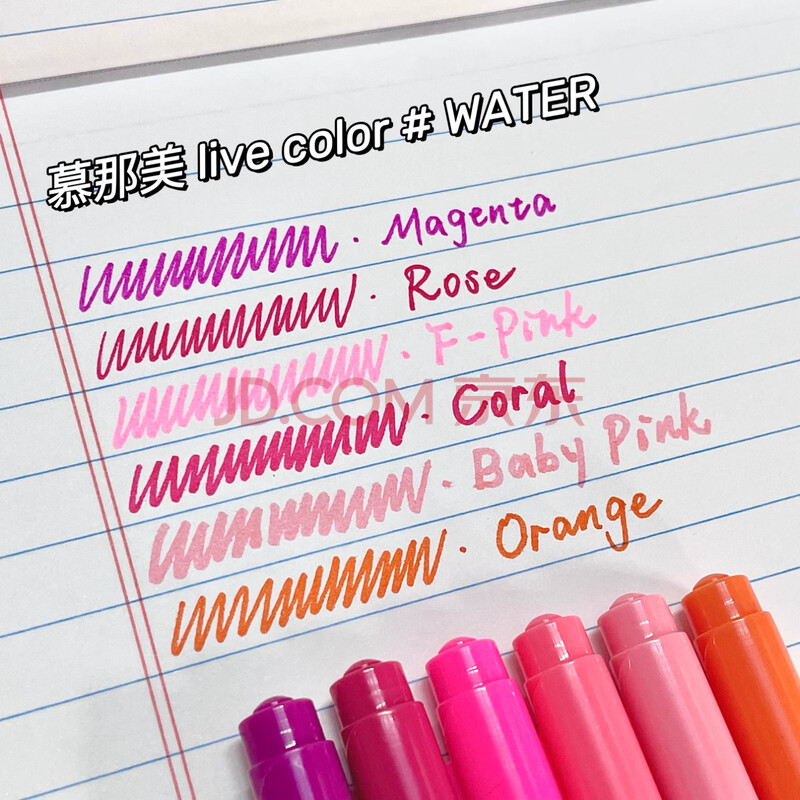 慕那美 live color # WATER
Magenta
Rose
F-Pink
JD.COM 京东
Coral
Baby Pink
Orange